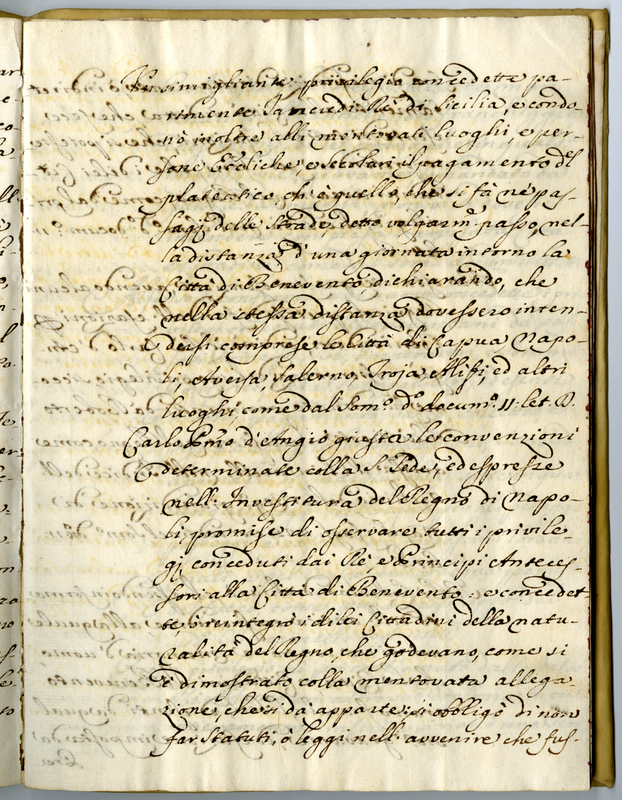 Un simigliante privilegio concedette pa-
rimente Tancredi Rè di Sicilia, e condo
nò inoltre alli mentovati luoghi, e per-
sone Eccliche, e secolari il pagamento del
plateatico, ch'è quello, che si fà ne pas-
saggj delle strade, detto volgarmte. passo, nel-
la distanza d'una giornata intorno la
Città di Benevento, dichiarando, che
nella stessa distanza dovessero inten-
dersi comprese le Città di Capua Napo-
li, Aversa, Salerno, Troja Alifi, ed altri
luoghi come dal Somo. do. docum. 11. let. D.
Carlo Primo d'Angiò giusta le convenzioni
determinate colla S. Sede, ed espresse
nell'Investitura del Regno di Napo-
li, promise di osservare tutti i privile-
gj conceduti dai Rè, e Principi Anteces-
sori alla Città di Benevento: e concedet-
te, e reintegrò i di lei Cittadini della natu-
ralità del Regno, che godevano, come si
è dimostrato colla mentovata allega-
zione, che si dà apparte: si obbligò di non
far Statuti, ò leggi nell'avvenire che fus-